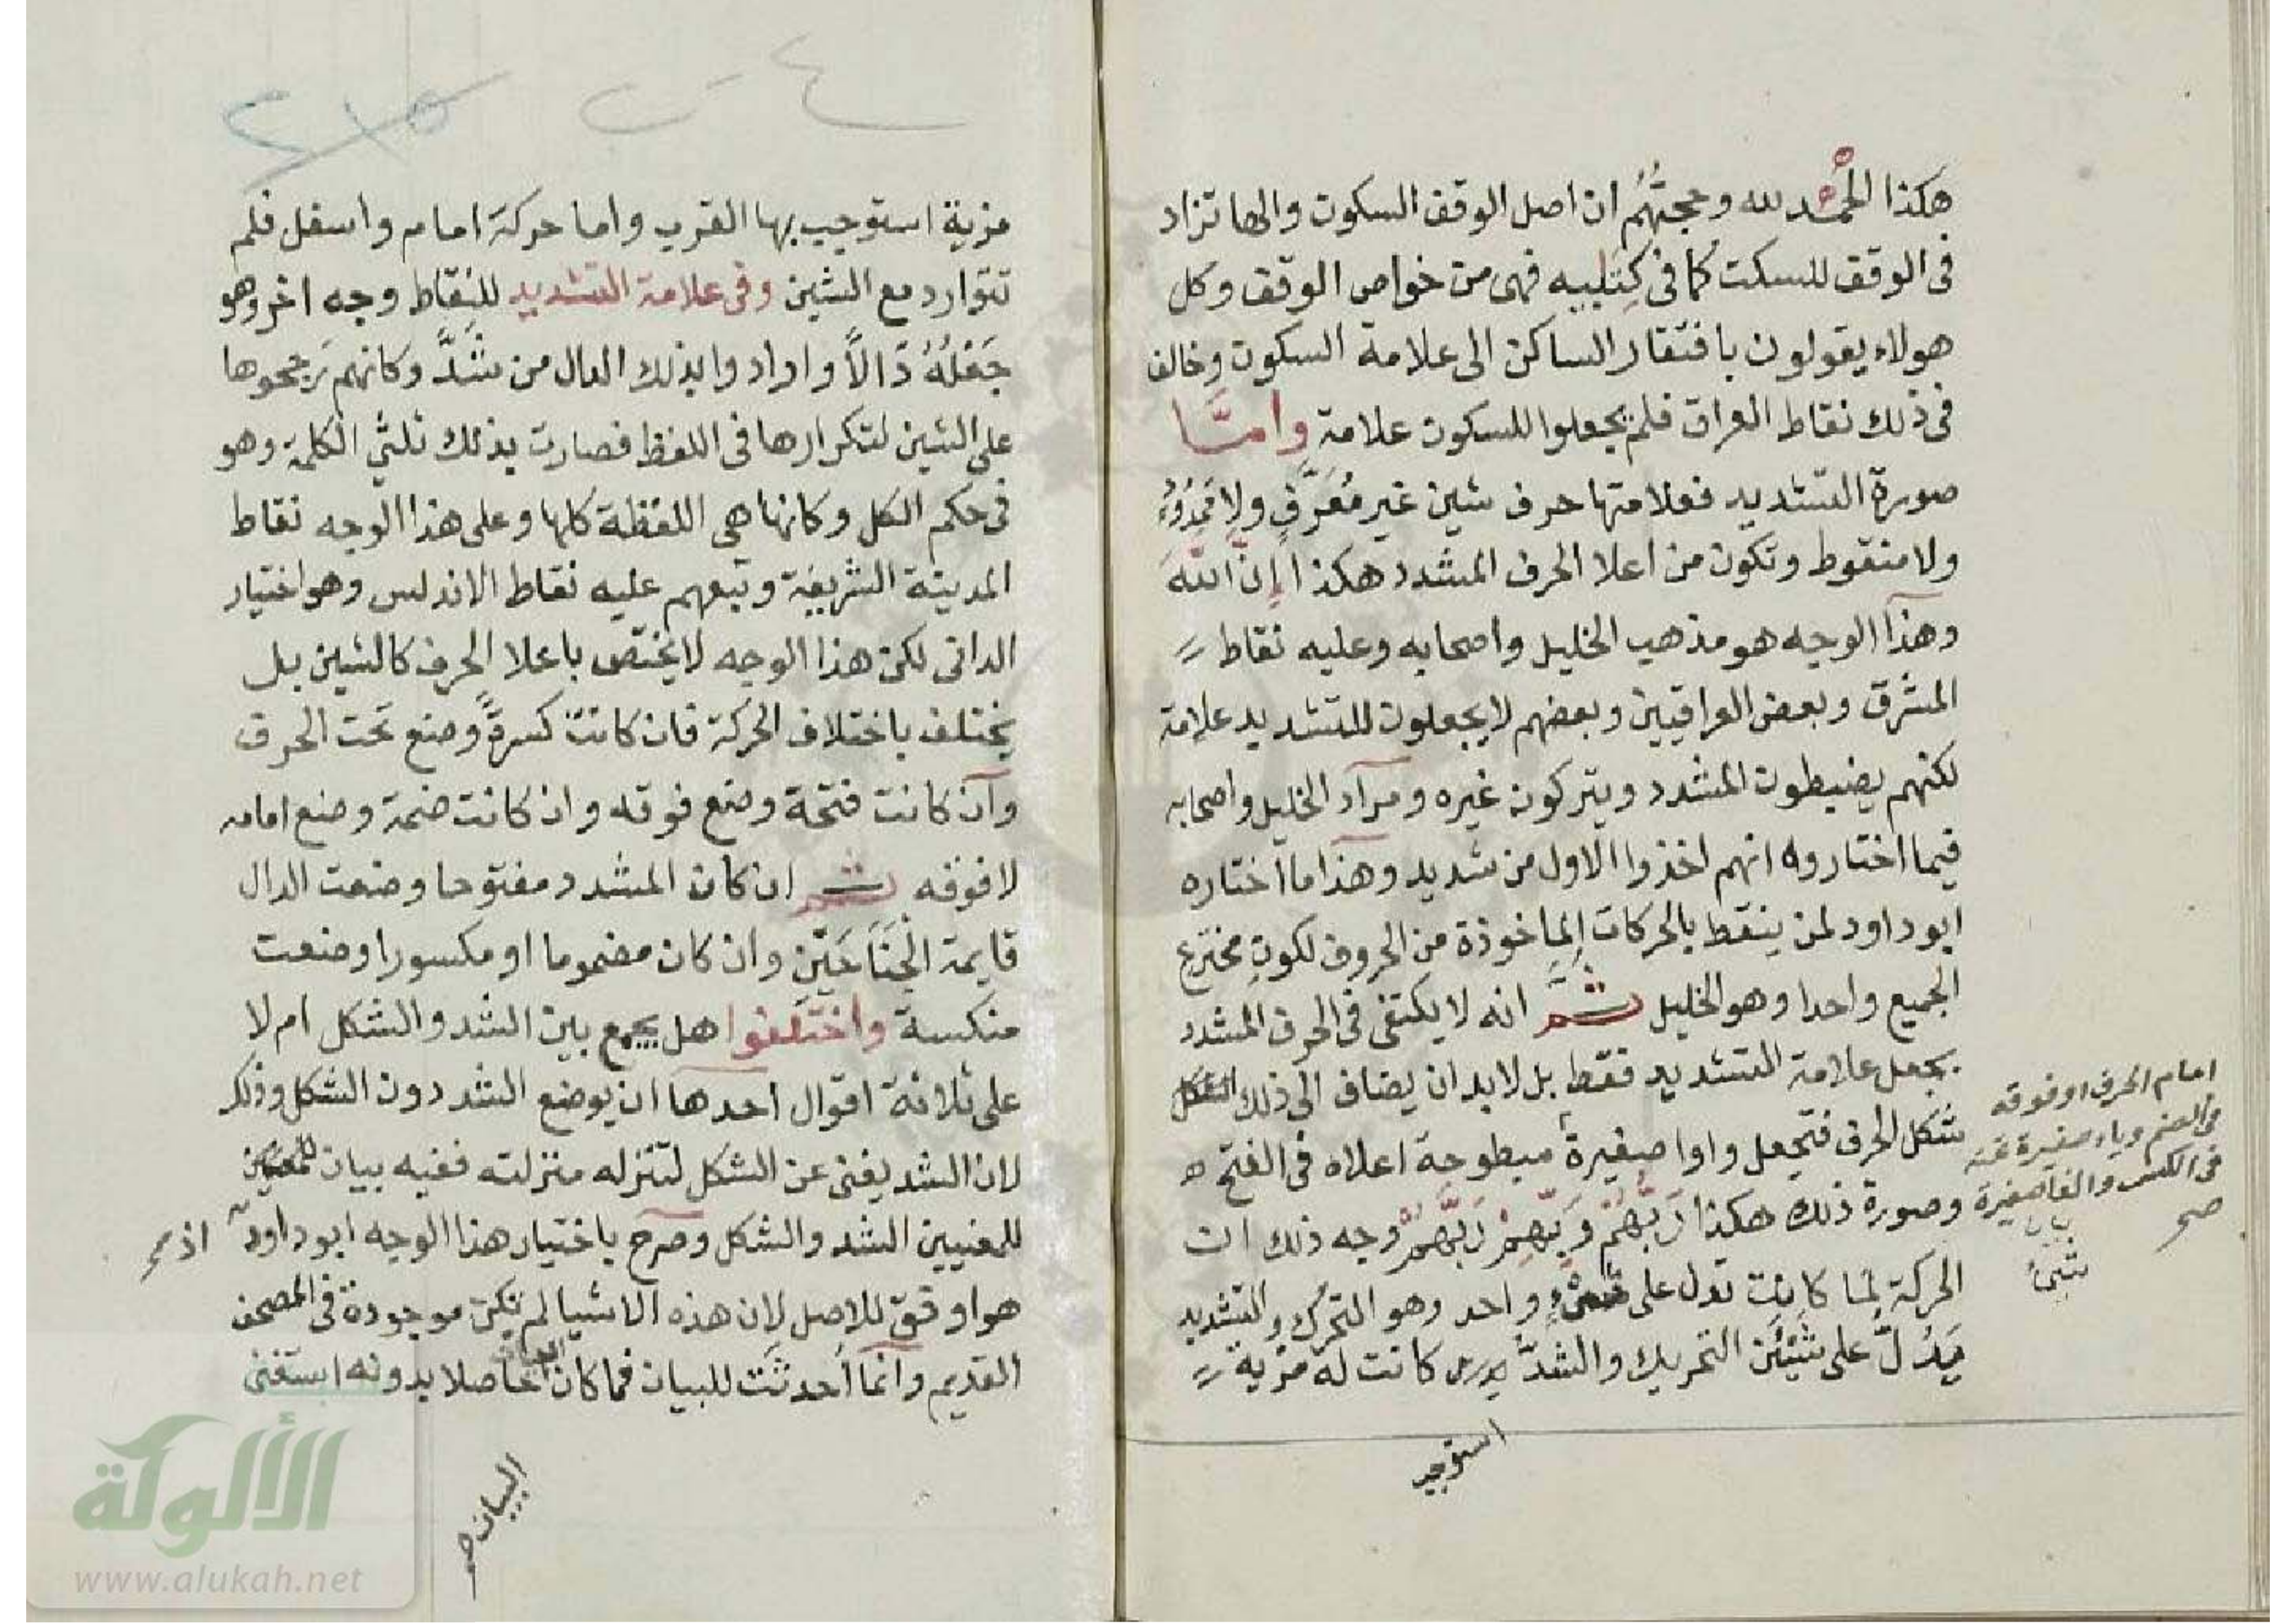 هكذا الحمد لله وحجتُهُم ان اصل الوقف السكون والها تزاد
فى الوقف للسكت كما فى كِتٰبيه فهى من خواص الوقف وكل
هولاء يقولون بافتقار الساكن الى علامة السكون وخالف
فى ذلك نقاط العراق فلم يجعلوا للسكون علامة وامّا
صورة التشديد فعلامتها حرف شين غير مُعَرَّقٍ ولا
ولا منقوط وتكون من اعلا الحرف المشدد هكذا إنّ اللّهَ
وهذا الوجه هو مذهب الخليل واصحابه وعليه نقاط
المشرق وبعض العراقيين وبعضهم لا يجعلون للتشديد علامة
لكنهم يضبطون المشدد ويتركون غيره ومراد الخليل واصحابه
فيما اختاروه انهم اخذوا الاول من شديد وهذا ما اختاره
ابو داود لمن ينقط بالحركات الماخوذة من الحروف لكونِ مخترع
الجميع واحدا وهو الخليل ثمّ انه لا يكتفى فى الحرف المشدد
بجعل علامة التشديد فقط بل لابد ان يضاف الى ذلك الشكل
شكل الحرف فتجعل واوا صغيرة مبطوحة اعلاه فى الفتح
امام الحرف او فوقه
فى الضم وياء صغيرة تحته
فى الكسر والفا صغيرة
صح
وصورة ذلك هكذا رَبُّهُمْ وَبِّهِمْ رَبَّهُمْ وجه ذلك ان
الحركة لمّا كانت تدل على شىء واحد وهو التحرك والتشديد
شىء
يَدُلّ على شيئين التحريك والشدّ كانت له مزية
استوجب
مزية استوجب بها القرب واما حركة امام واسفل فلم
تتوارد مع الشين وفى علامة التشديد للنقاط وجه اخر وهو
جَعْلُهُ دَالاً وارادوا بذلك الدال من شدَّ وكانهم رجحوها
على الشين لتكرارها فى اللفظ فصارت بذلك ثلثي الكلمة وهو
فى حكم الكل وكانها هى اللفظة كلها وعلى هذا الوجه نقاط
المدينة الشريفة وتبعهم عليه نقاط الاندلس وهو اختيار
الدانى لكن هذا الوجه لا يختص باعلا الحرف كالشين بل
يختلف باختلاف الحركة فان كانت كسرةً وضع تحت الحرف
وان كانت فتحة وضع فوقه وان كانت ضمة وضع امامه
لا فوقه ثم ان كان المشدد مفتوحا وضعت الدال
قايمة الْجَنَاحَيْنِ وان كان مضموما او مكسورا وضعت
منكسة واختلفوا هل يجمع بين الشد والشكل ام لا
على ثلاثة اقوال احدها ان يوضع الشد دون الشكل وذلك
لان الشد يغنى عن الشكل لتنزله منزلته ففيه بيان
للمعنيين الشد والشكل وصرح باختيار هذا الوجه ابو داود اذ
هو اوفق للاصل لان هذه الاشيا لم تكن موجودة فى المصحف
القديم وانما اُحدثت للبيان فما كان حاصلا بدونه استغنى
البيان صح
الألوكة
www.alukah.net